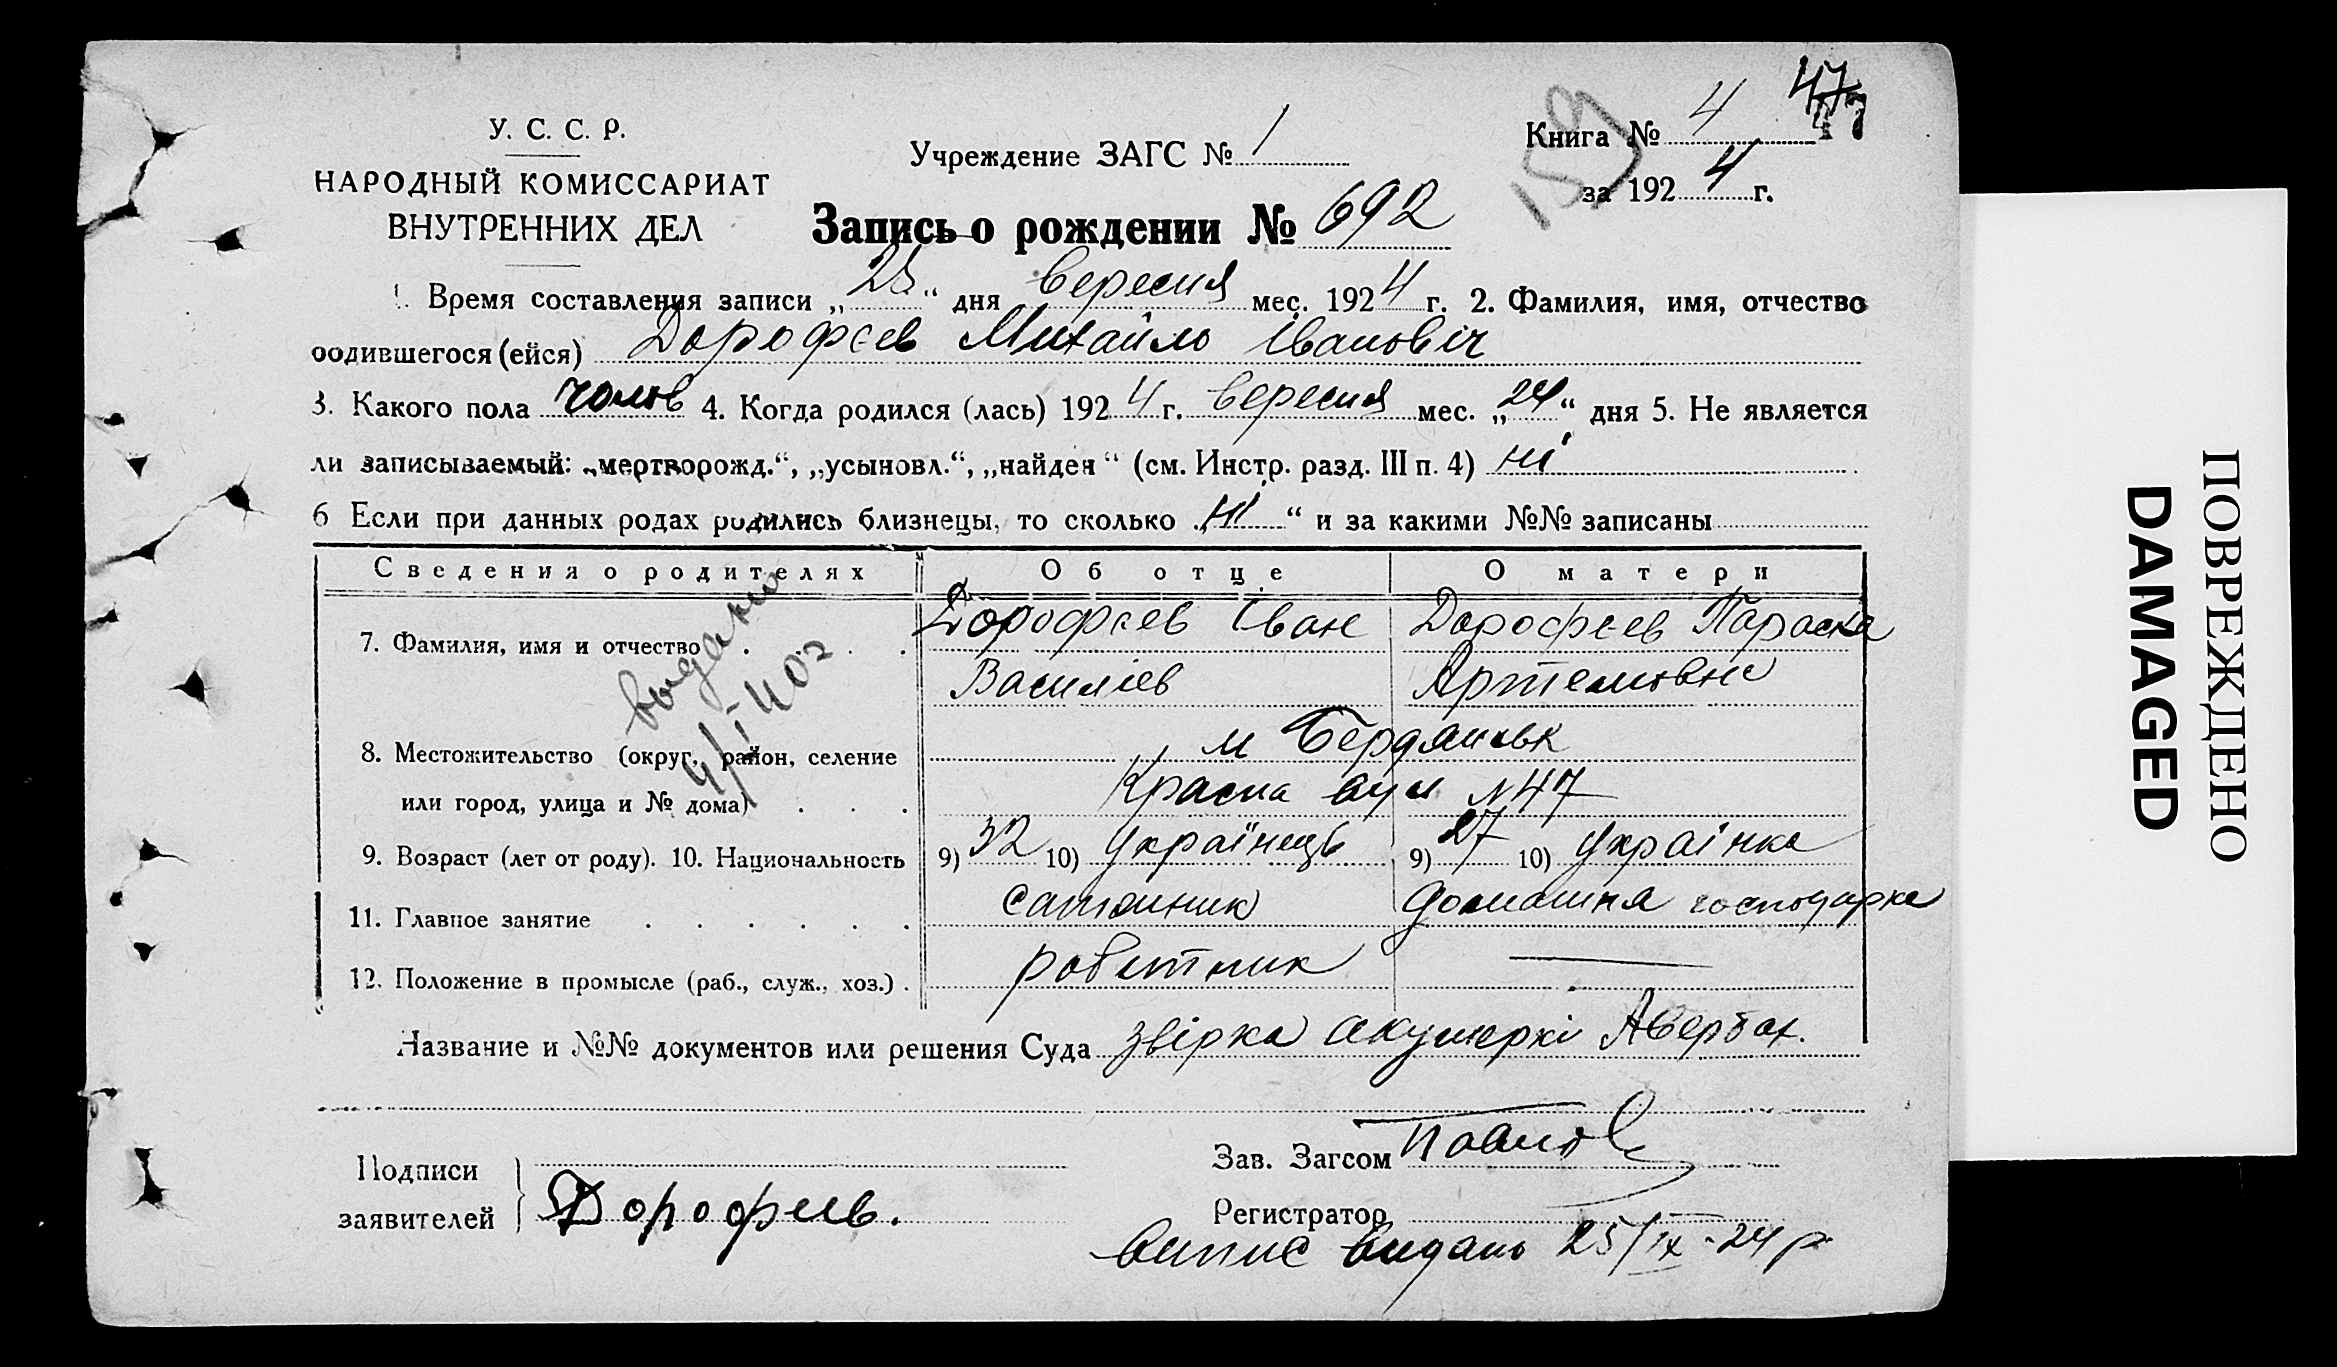 47
У. С. С. Р.
НАРОДНЫЙ КОМИССАРИАТ
ВНУТРЕННИХ ДЕЛ
Учреждение ЗАГС № 1
Книга № 4
за 1924 г.
159
Запись о рождении № 692
1. Время составления записи „25“ дня вересня мес. 1924 г. 2. Фамилия, имя, отчество
родившегося (ейся) Дорофєев Михайло Іванович
3. Какого пола чолов 4. Когда родился (лась) 1924 г. вересня мес. „24“ дня 5. Не является
ли записываемый: „мертворожд.“, „усыновл.“, „найден“ (см. Инстр. разд. III п. 4) ні
6 Если при данных родах родились близнецы, то сколько „ні“ и за какими №№ записаны
Сведения о родителях Об отце О матери
7. Фамилия, имя и отчество Дорофєев Іван Дорофєев Параска
Василіев Артемовна
выдано
4/I 40 г
8. Местожительство (округ, район, селение м Бердянськ
или город, улица и № дома) Красна вул №47
9. Возраст (лет от роду). 10. Национальность 9) 32 10) Українець 9) 27 10) Українка
11. Главное занятие домашня господарка
12. Положение в промысле (раб., служ., хоз.) робітник —
Название и №№ документов или решения Суда звірка акушеркі Авербах.
Подписи
заявителей Дорофеев.
Зав. Загсом Павлов
Регистратор
випис видано 25/IX-24 р
ПОВРЕЖДЕНО
DAMAGED